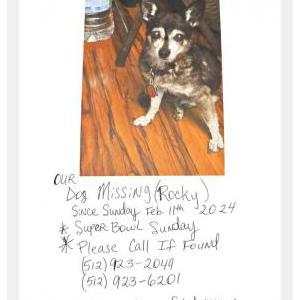 OUR
Dog Missing (Rocky)
Since Sunday Feb 11th 2024
* Super Bowl Sunday
* Please Call If Found
(512) 923-2049
(512) 923-6201